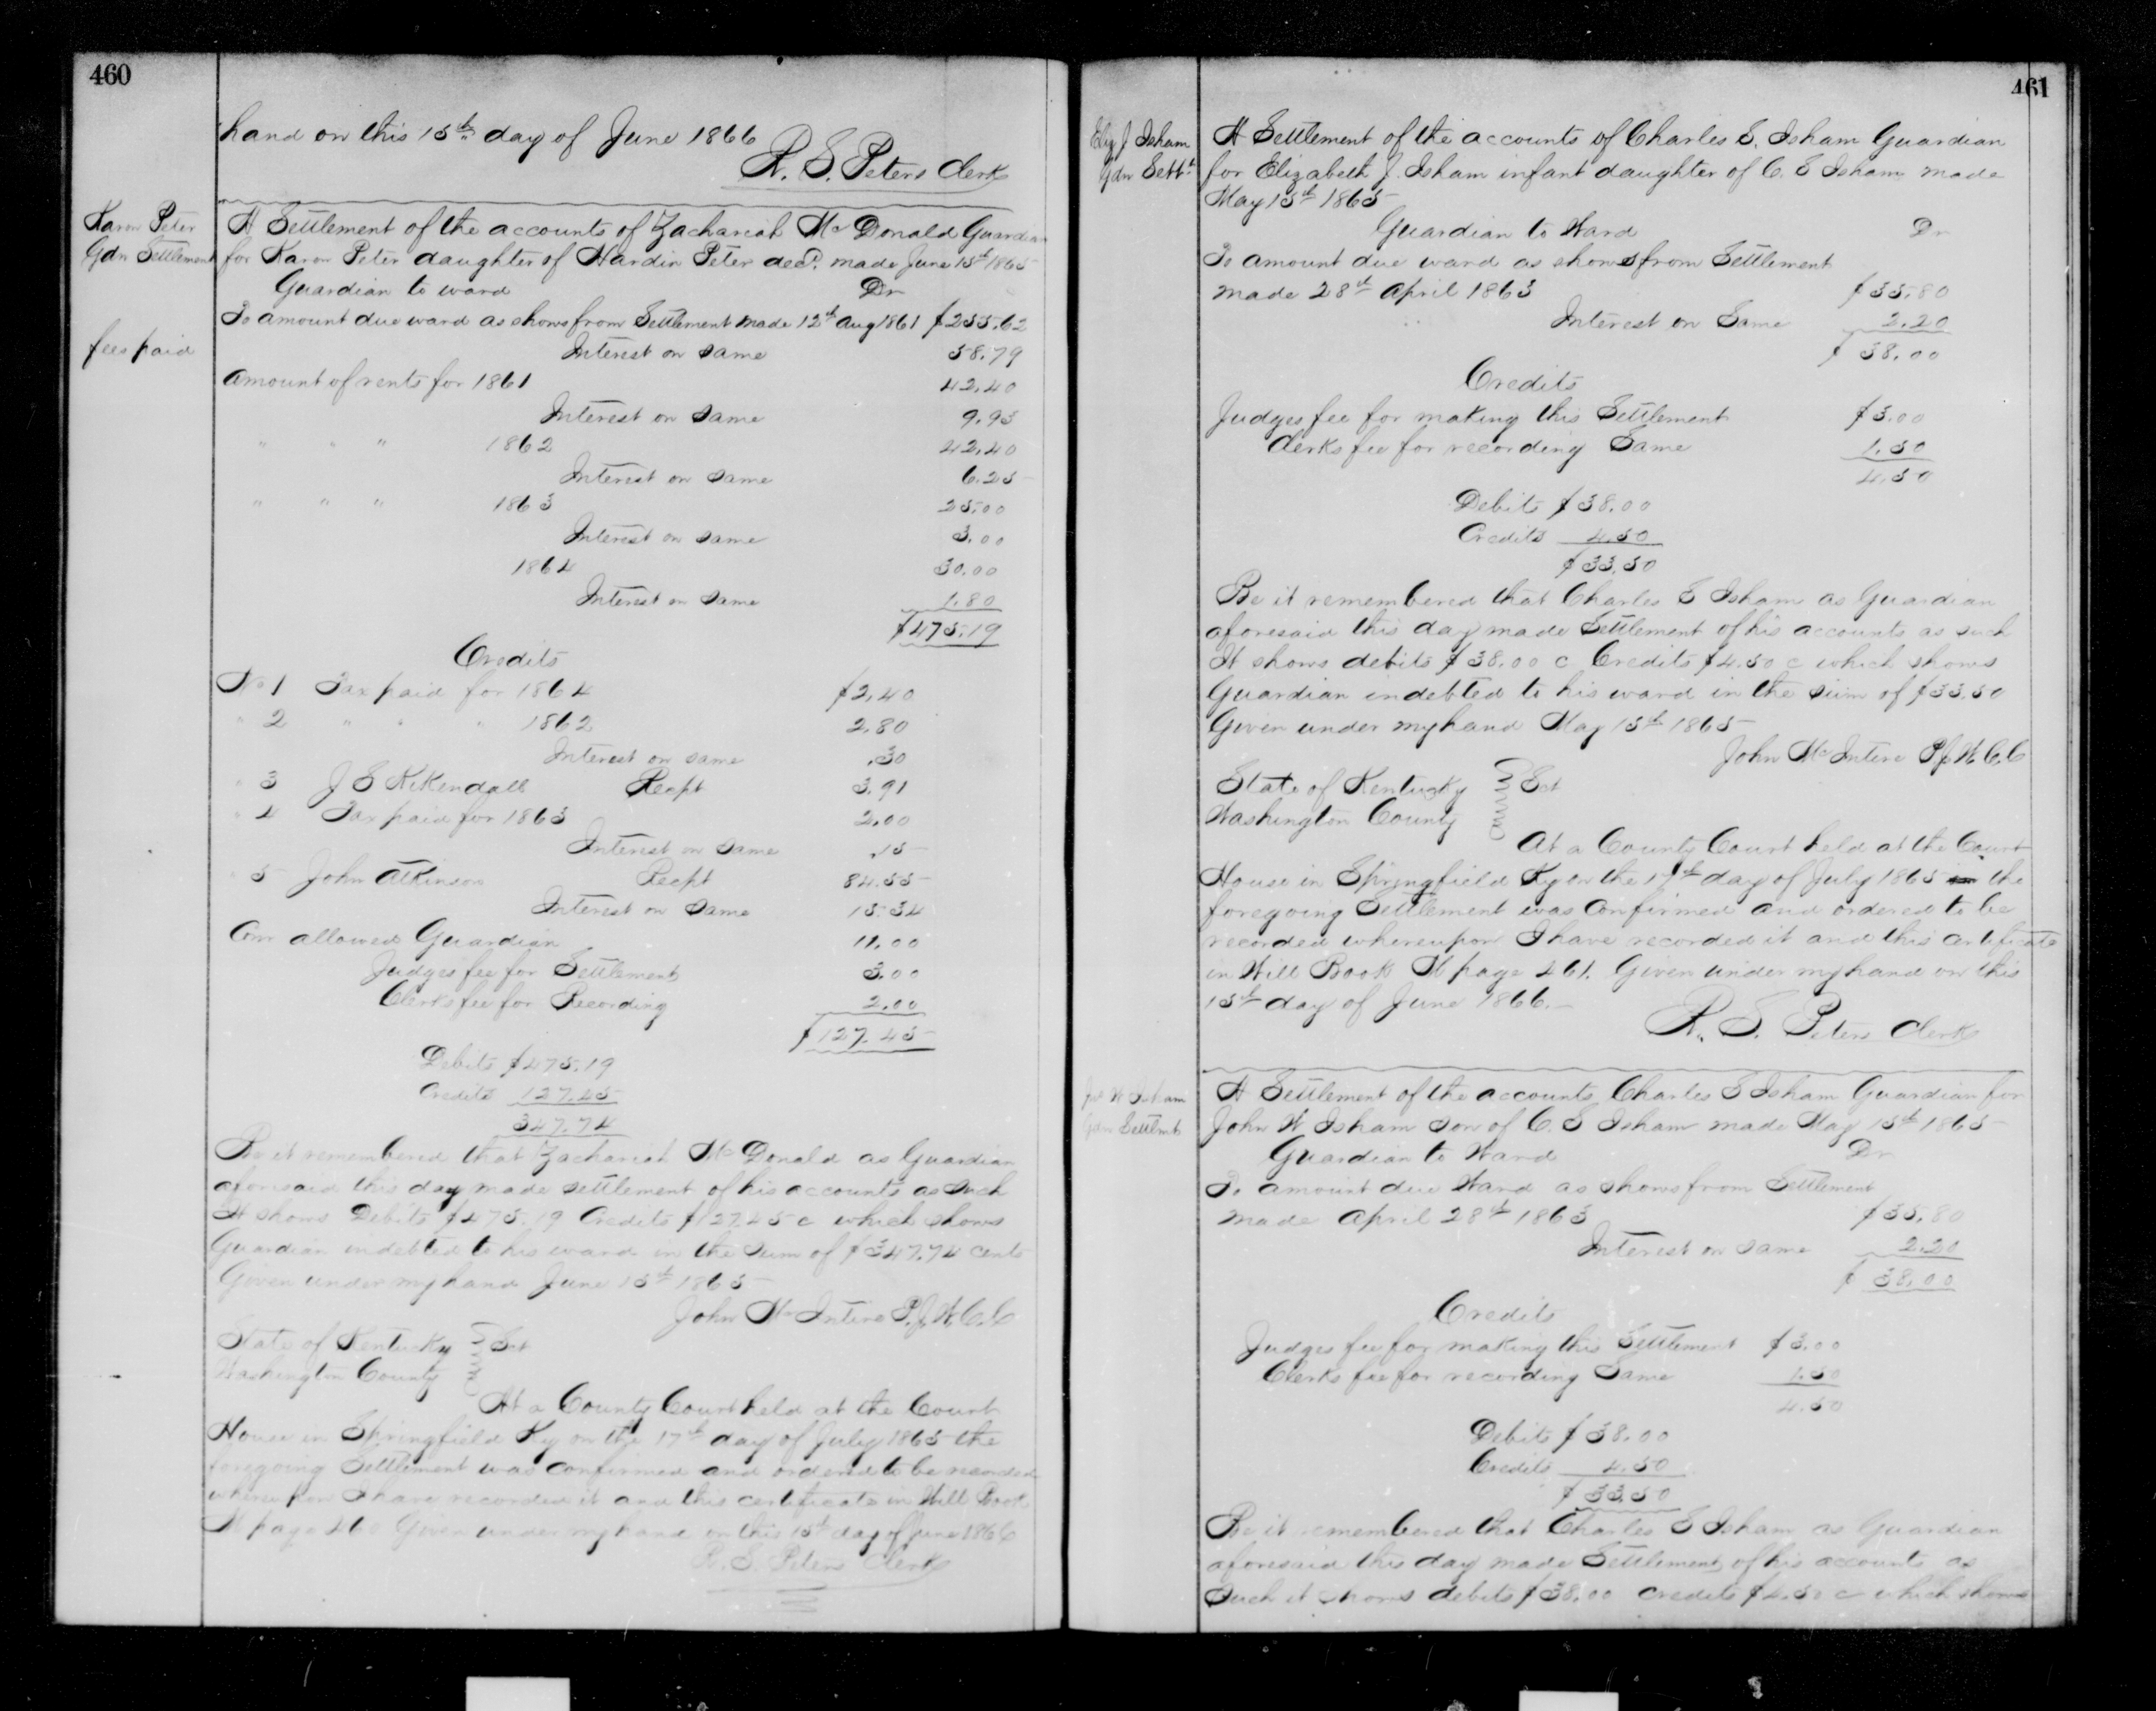 460
hand on this 15th day of June 1866
R. S. Peters Clerk
Karon Peter
Gdn Settlement
fees paid
A Settlement of the accounts of Zachariah McDonald Guardian
for Karon Peter daughter of Hardin Peter decd. made June 15th 1865
Guardian to ward Dr
To amount due ward as shows from Settlement made 12th Aug 1861 $255.62
Interest on same 58.79
Amount of rents for 1861 42.40
Interest on same 9.93
" " " 1862 42.40
Interest on same 6.25
" " " 1863 25.00
Interest on same 3.00
1864 30.00
Interest on same 1.80
$475.19
Credits
No 1 Tax paid for 1864 $2.40
" 2 " " " 1862 2.80
Interest on same .30
" 3 J S Kikendall Recpt 3.91
" 4 Tax paid for 1863 2.00
Interest on same .15
" 5 John Atkinson Recpt 84.55
Interest on same 15.34
Com allowed Guardian 11.00
Judges fee for Settlement 3.00
Clerks fee for Recording 2.00
$127.45
Debits $475.19
Credits 127.45
347.74
Be it remembered that Zachariah McDonald as Guardian
aforesaid this day made settlement of his accounts as such
It shows Debits $475.19 Credits $127.45 c which shows
Guardian indebted to his ward in the sum of $347.74 cents
Given under my hand June 15th 1865
John McIntire P.J.W.C.C
State of Kentucky } Sct
Washington County
At a County Court held at the Court
House in Springfield Ky on the 17th day of July 1865 the
foregoing Settlement was confirmed and ordered to be recorded
whereupon I have recorded it and this certificate in Will Book
M page 460 Given under my hand on this 15th day of June 1866
R. S. Peters Clerk
461
Eliz J. Isham
Gdn Settt
A Settlement of the accounts of Charles S. Isham Guardian
for Elizabeth J. Isham infant daughter of C. S Isham made
May 15th 1865
Guardian to Ward Dr
To amount due ward as shows from Settlement
made 28th April 1863 $35.80
Interest on Same 2.20
$38.00
Credits
Judges fee for making this Settlement $3.00
Clerks fee for recording Same 1.50
4.50
Debits $38.00
Credits 4.50
$33.50
Be it remembered that Charles S Isham as Guardian
aforesaid this day made Settlement of his accounts as such
It shows debits $38.00 c Credits $4.50 c which shows
Guardian indebted to his ward in the sum of $33.50
Given under my hand May 15th 1865
John McIntire P.J.W.C.C
State of Kentucky } Sct
Washington County
At a County Court held at the Court
House in Springfield Ky on the 17th day of July 1865 the
foregoing Settlement was confirmed and ordered to be
recorded whereupon I have recorded it and this certificate
in Will Book M page 461. Given under my hand on this
15th day of June 1866.
R. S. Peters Clerk
Jno W Isham
Gdn Settlmt
A Settlement of the accounts Charles S Isham Guardian for
John W Isham son of C. S Isham made May 15th 1865
Guardian to Ward Dr
To amount due Ward as shows from Settlement
made April 28th 1863 $35.80
Interest on same 2.20
$38.00
Credits
Judges fee for making this Settlement $3.00
Clerks fee for recording Same 1.50
4.50
Debits $38.00
Credits 4.50
$33.50
Be it remembered that Charles S Isham as Guardian
aforesaid this day made Settlement of his accounts as
Such it shows debits $38.00 credits $4.50 c which shows